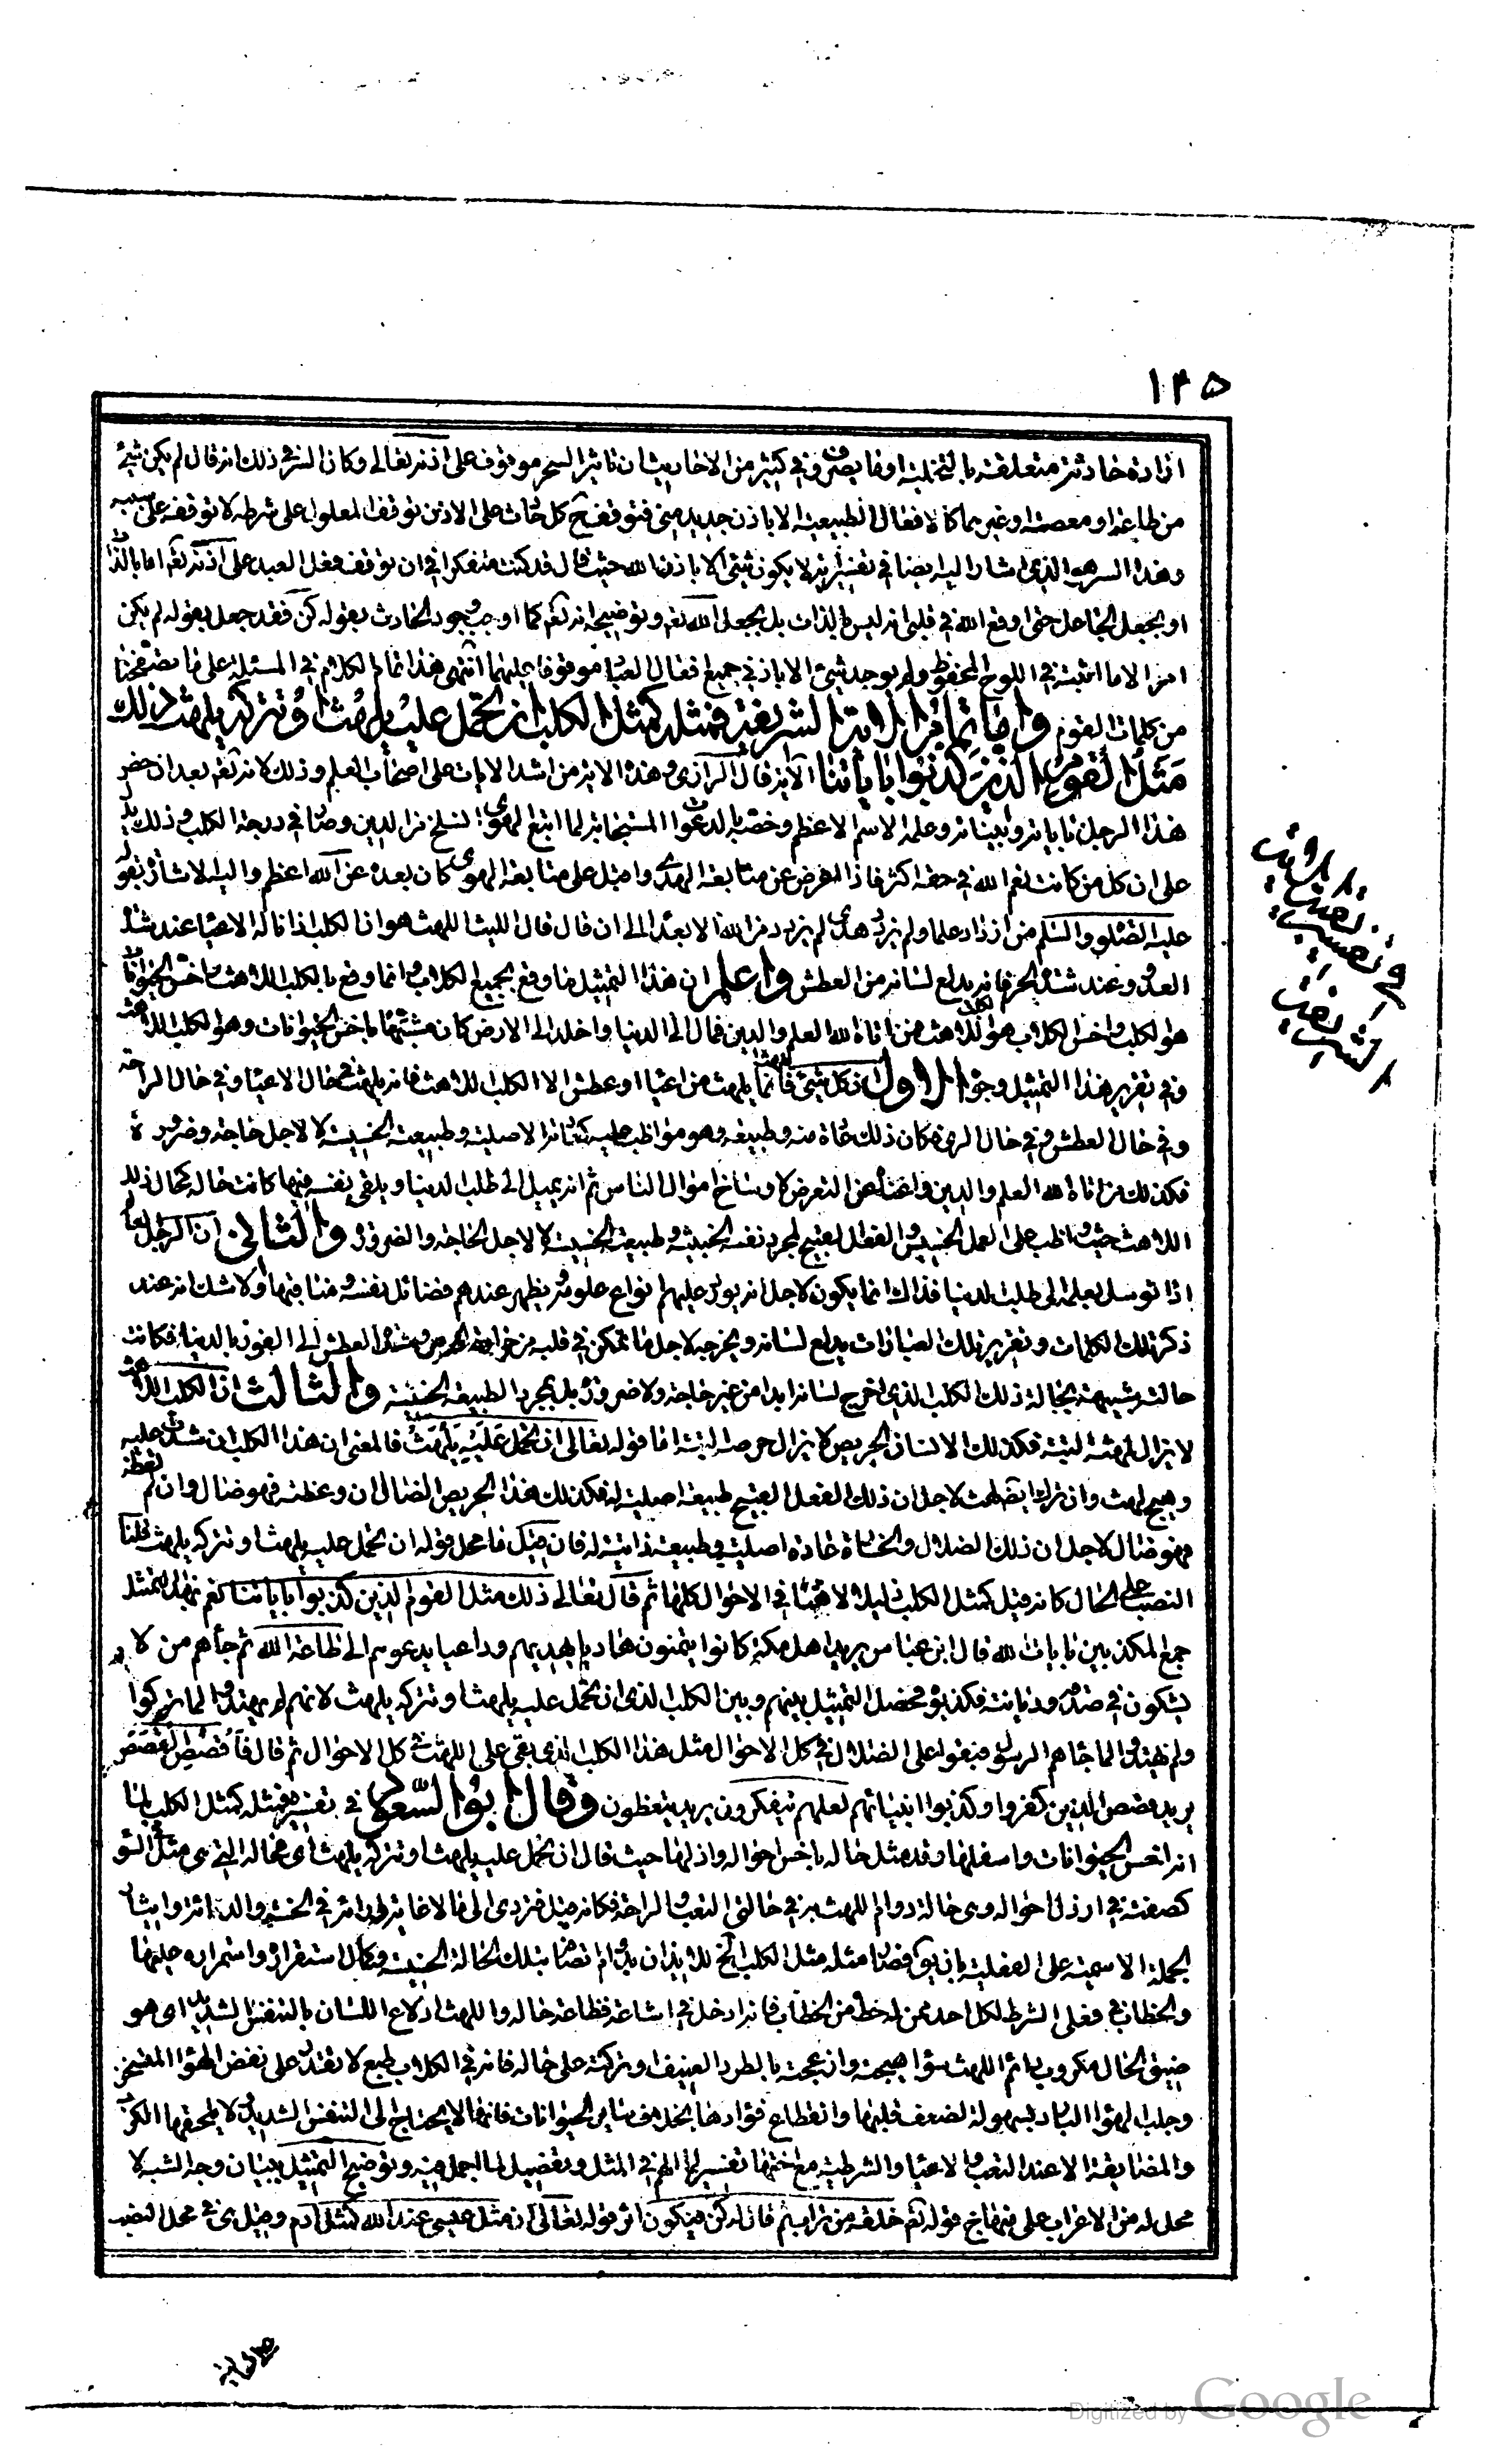 ١٣٥
ارادة حادثة متعلقة بالتخلية او بما يصرف وفى كثير من الاخبار يثبان تاثير السحر موقوف على اذنه تعالى وكان السر فى ذلك انه قال لم يكن شىء
من طاعة او معصية او غيرهما كالافعال الطبيعية الا باذن جديد منى فتوقف ح كل حادث على الاذن توقف المعلول على شرطه لا توقفه على سببه
وهذا السر هو الذى اشار اليه بعضنا فى تفسير انه لا يكون شىء الا باذن الله حيث قال قد كنت متفكرا فى ان توقف فعل العبد على اذنه تعم اما بالذات
او بجعل الجاعل حتى اوقع الله فى قلبى انه ليس بالذات بل بجعل الله تعم وتوضيحه انه تعم كما اوجب وجود الحادث بقوله كن فقد جعل بقوله لم يكن
امرا لا ما اثبته فى اللوح المحفوظ ولم يوجد شىء الا باذنى جميع افعال العباد موقوفا عليهما انتهى هذا تمام الكلام فى المسئلة على ما
من كلمات القوم واما تمام الاية الشريفة فمثله كمثل الكلب ان تحمل عليه يلهث او تتركه يلهث ذلك
مثل القوم الذين كذبوا باياتنا الاية قال الرازى وهذه الاية من اشد الايات على اصحاب العلم وذلك لانه تعم بعد ان خص
هذا الرجل باياته وبيناته وعلمه الاسم الاعظم وخصه بالدعوات المستجابة لما اتبع الهوى انسلخ من الدين وصار فى درجة الكلب وذلك يدل
على ان كل من كانت نعم الله فى حقه اكثر فاذا اعرض عن متابعة الهدى واقبل على متابعة الهوى كان بعده عن الله اعظم واليه الاشارة بقوله
عليه الصلوة والسلم من ازداد علما ولم يزدد هدى لم يزدد من الله الا بعدا الى ان قال قال الليث اللهث هو ان الكلب اذا ناله الاعياء عند شدة
العدو وعند شدة الحر فانه يدلع لسانه من العطش واعلم ان هذا التمثيل ما وقع بجميع الكلاب وانما وقع بالكلب اللاهث واخس الحيوانات
هو الكلب واخس الكلاب هو الكلب اللاهث فمن اتاه الله العلم والدين فمال الى الدنيا واخلد الى الارض كان مشبها باخس الحيوانات وهو الكلب اللاهث
وفى تقرير هذا التمثيل وجوه الاول ان كل شىء يلهث فانما يلهث من اعياء او عطش الا الكلب اللاهث فانه يلهث فى حال الاعياء وفى حال الراحة
وفى حال العطش وفى حال الرى فكان ذلك عادة منه وطبيعة وهو مواظب عليه كعادته الاصلية وطبيعته الخسيسة لا لاجل حاجة وضرورة
فكذلك من اتاه الله العلم والدين واغناه عن التعرض لاوساخ اموال الناس ثم انه يميل الى طلب الدنيا ويلقى نفسه فيها كانت حاله كحال ذلك
اللاهث حيث واظب على العمل الخسيس والفعل القبيح لمجرد نفسه الخبيثة وطبيعته الخسيسة لا لاجل الحاجة والضرورة والثانى ان الرجل العالم
اذا توسل بعلمه الى طلب الدنيا فذاك انما يكون لاجل انه يورد عليهم انواع علومه ويظهر عندهم فضائل نفسه ومناقبها ولا شك انه عند
ذكر تلك الكلمات وتقرير تلك العبارات يدلع لسانه ويخرجه لاجل ما تمكن فى قلبه من حرارة الحرص وشدة العطش الى الفوز بالدنيا فكانت
حالته شبيهة بحالة ذلك الكلب الذى اخرج لسانه ابدا من غير حاجة ولا ضرورة بل بمجرد الطبيعة الخسيسة والثالث ان الكلب اللاهث
لا يزال لهثه البتة فكذلك الانسان الحريص لا يزال حرصه البتة اما قوله تعالى ان تحمل عليه يلهث فالمعنى ان هذا الكلب ان شد عليه
وهيج لهث وان ترك ايضا لهث لاجل ان ذلك الفعل القبيح طبيعة اصلية له فكذلك هذا الحريص الضال ان وعظته فهو ضال وان لم تعظه
فهو ضال لاجل ان ذلك الضلال والخسارة عادة اصلية وطبيعة ذاتية له فان قيل فما محل قوله ان تحمل عليه يلهث او تتركه يلهث قلنا
النصب على الحال كانه قيل كمثل الكلب ذليلا لاهثا فى الاحوال كلها ثم قال تعالى ذلك مثل القوم الذين كذبوا باياتنا فعم بهذا المثل
جميع المكذبين بايات الله قال ابن عباس يريد اهل مكة كانوا يتمنون هاديا يهديهم وداعيا يدعوهم الى طاعة الله ثم جاءهم من لا
يشكون فى صدقه وديانته فكذبوه فحصل التمثيل بينهم وبين الكلب الذى ان تحمل عليه يلهث او تتركه يلهث لانهم لم يهتدوا لما تركوا
ولم يهتدوا لما جاءهم الرسول فبقوا على الضلال فى كل الاحوال مثل هذا الكلب الذى بقى على اللهث فى كل الاحوال ثم قال فاقصص القصص
يريد قصص الذين كفروا وكذبوا انبيائهم لعلهم يتفكرون يريد يتعظون وقال ابو السعود فى تفسيره فمثله كمثل الكلب لما
انه اخس الحيوانات واسفلها وقد مثل حاله باخس احواله واذلها حيث قال ان تحمل عليه يلهث او تتركه يلهث اى فحاله التى هى مثل السوء
كصفته فى ارذل احواله وهى حالة دوام اللهث به فى حالتى التعب والراحة فكانه قيل فتردى الى ما لا غاية وراءه فى الخسة والدنائة وايثار
الجملة الاسمية على الفعلية بان يق فصار مثله مثل الكلب الخ للايذان بدوام اتصافه بتلك الحالة الخسيسة وكمال استقراره واستمراره عليها
والخطاب فى فعلى الشرط لكل احد ممن له حظ من الخطاب فانه ادخل فى اشاعة فظاعة حاله واللهث ادلاع اللسان بالتنفس الشديد اى هو
ضيق الحال مكروب دائم اللهث سواء هيجته وازعجته بالطرد العنيف او تركته على حاله فانه فى الكلاب طبع لا تقدر على نفض الهواء المتسخن
وجلب الهواء البارد بسهولة لضعف قلبها وانقطاع فؤادها بخلاف سائر الحيوانات فانها لا يحتاج الى التنفس الشديد ولا يلحقها الكرب
والمضايقة الا عند التعب والاعياء والشرطية مع اختها تفسير لما ابهم فى المثل وتفصيل لما اجمل فيه وتوضيح التمثيل ببيان وجه الشبه لا
محل له من الاعراب على منهاج قوله تعم خلقه من تراب ثم قال له كن فيكون اثر قوله تعالى ان مثل عيسى عند الله كمثل ادم وقيل هى فى محل النصب
فى تفسير
الشريفة